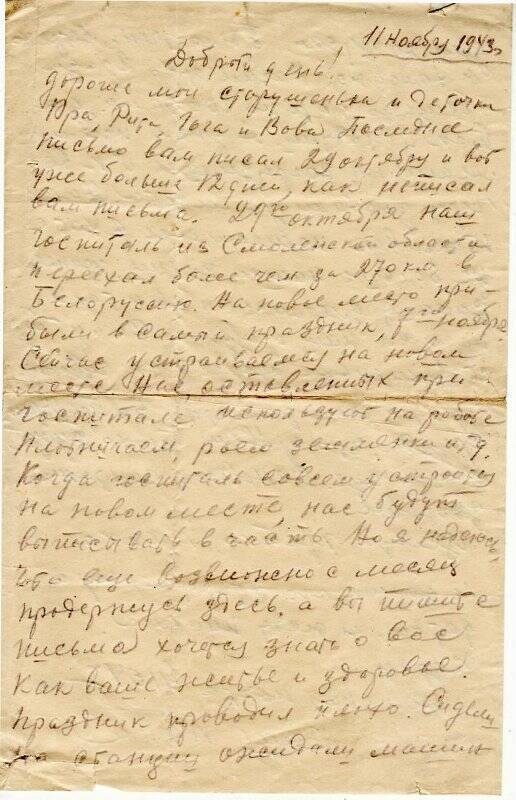 11 Ноября 1943г
Добрый день!
дорогие мои старушенька и деточки
Ира, Рита, Гога и Вова Последнее
письмо вам писал 29 октября и вот
уже больше 12 дней, как не писал
вам письма. 29го октября наш
госпиталь из Смоленской области
переехал более чем за 270 км в
Белоруссию. На новое место при-
были в самый праздник, 7го ноября.
Сейчас устраиваемся на новом
месте Нас, оставленных при
госпитале используют на работе
плотничаем, роем землянки и т.д.
Когда госпиталь совсем устроится
на новом месте, нас будут
выписывать в часть. Но я надеюсь,
что еще возможно с месяц
продержусь здесь. а вы пишите
письма хочется знать о вас
как ваше житье и здоровье.
Праздник проводил плохо. Сидели
на станции ожидали машин